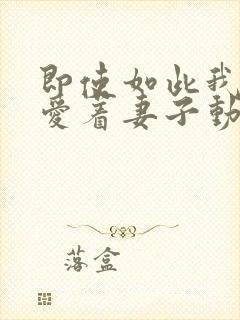 即使如此我
愛着妻子動
落盒